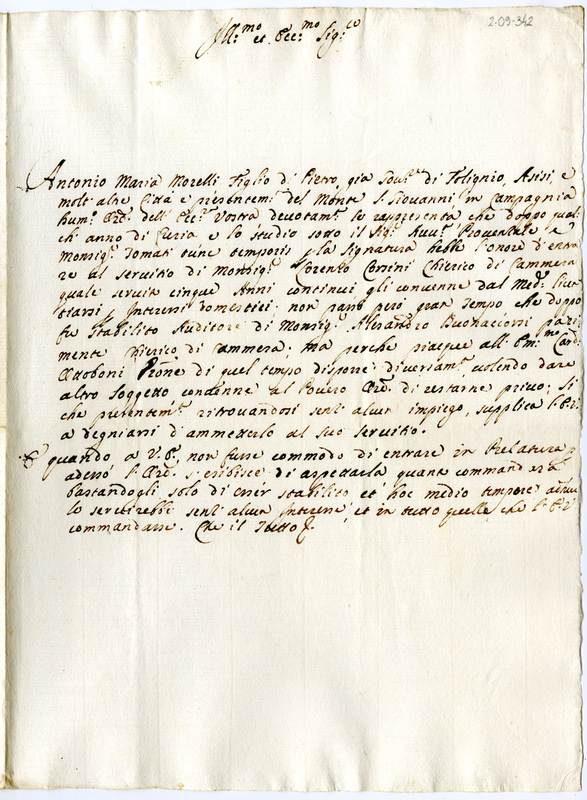 2-09-342
Ill.mo et Ecc.mo Sig.re
Antonio Maria Morelli Figlio di Pietro, già Gov.re di Folignio, Asisi, e
molt altre Città e presentem.e del Monte S. Giovanni in Campagnia
hum.o Ore. dell' Ecc.a Vostra devotam.e le rappresenta che doppo qual
ch' anno di Curia e lo studio sotto il Sig.r Avv.o Provenzale e
Monsig.r tunc temporis la signatura hebbe l'onore d'entra
re al servitio di Monsig.r Lorenzo Corsini Chierico di Cammera
quale servita cinque Anni continui gli convenne dal Med.o licen
tiarsi Interessi domestici; non passò però gran tempo che doppo
fu stabilito Auditore di Monsig.r Alesandro Buonaccorsi pari
mente Chierico di Cammera; ma perche piacque all' Em.o Card.
Ottoboni di quel tempo disporre diversam.e volendo dare
altro soggetto, condenne al Povero Ore. di restarne privo; si
che presentem.e ritrovandosi senz' alcun impiego, supplica
a degniarsi d'ammetterlo al suo servitio.
E quando a V.E. non fusse commodo di entrare in Prelatura
adesso l'Ore. s'esibisce di aspettarla quanto commanderà
bastandogli solo di esser stabilito et hoc medio tempore
lo servirebbe senz' alcun Interesse, et in tutto quello, che
commandasse. Che il tutto